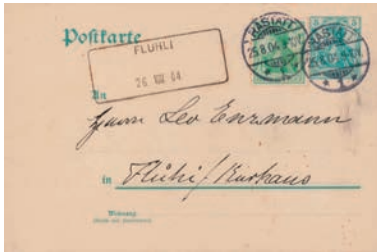 Postkarte
FLÜHLI
26 VIII 04
RASTATT
25.8.04
RASTATT
25.8.04
An
Herrn Leo Enzmann
in Flühli/Kurhaus
Wohnung